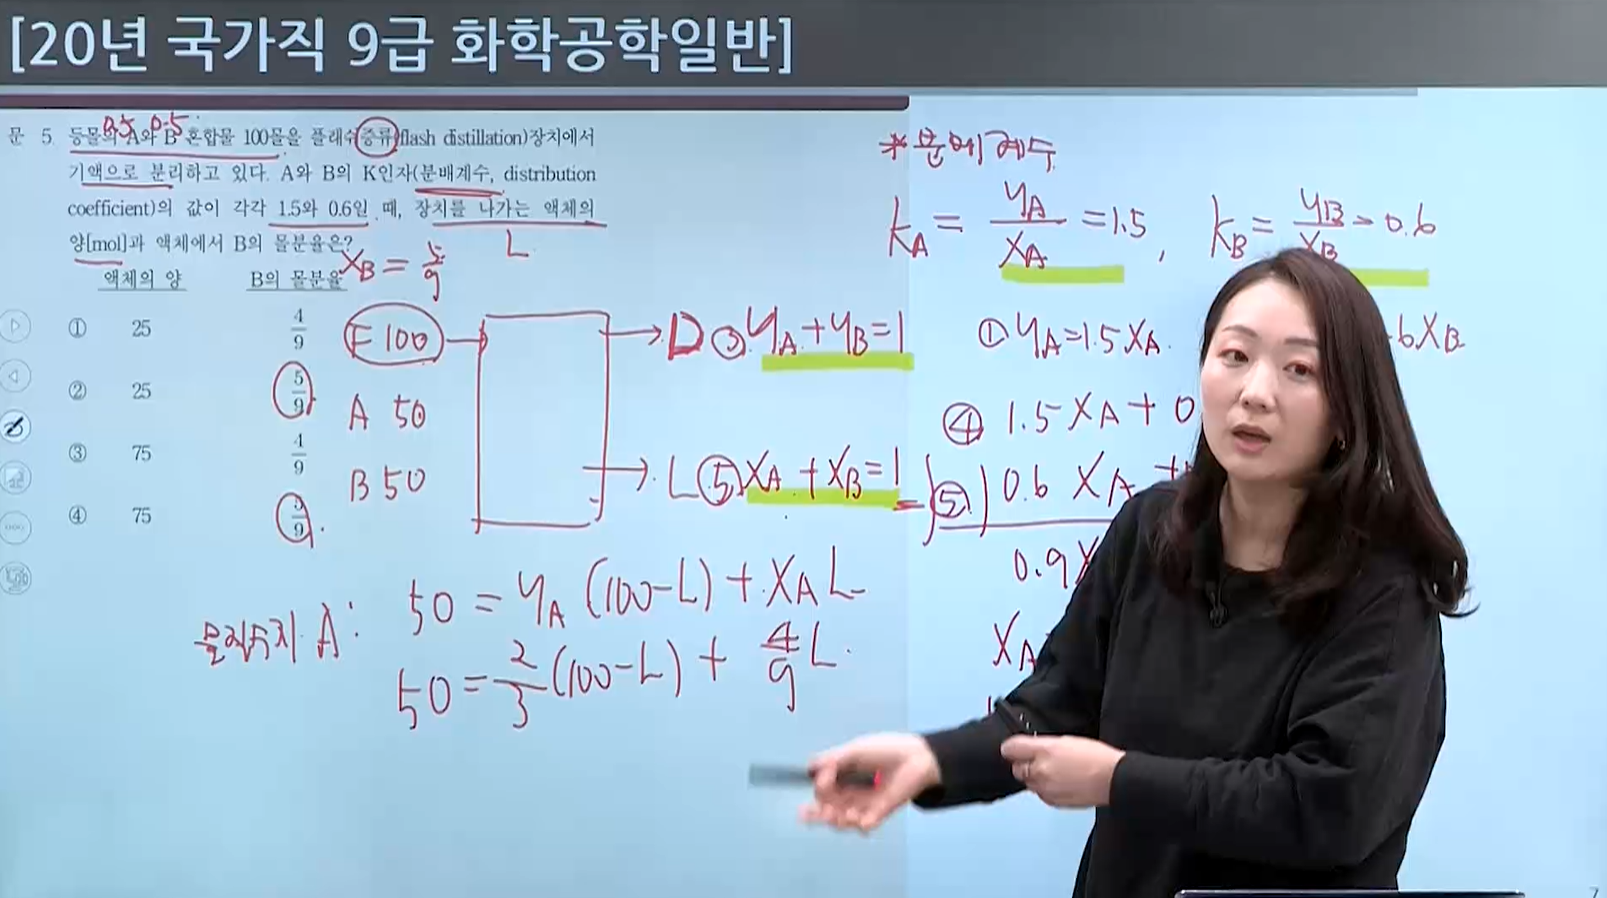 [20년 국가직 9급 화학공학일반]
문 5. 등몰의 A와 B 혼합물 100몰을 플래쉬증류(flash distillation)장치에서
기액으로 분리하고 있다. A와 B의 K인자(분배계수, distribution
coefficient)의 값이 각각 1.5와 0.6일 때, 장치를 나가는 액체의
양[mol]과 액체에서 B의 몰분율은?
L
X_B = 5/9
액체의 양 B의 몰분율
① 25 4/9
② 25 5/9
③ 75 4/9
④ 75 5/9
F 100
A 50
B 50
D ③ y_A + y_B = 1
L ⑤ X_A + X_B = 1
* 분배계수
K_A = y_A/X_A = 1.5 , K_B = y_B/X_B = 0.6
① y_A = 1.5X_A 6X_B
④ 1.5X_A + 0
⑤ ) 0.6 X_A +
0.9X
X_A
물질수지 A: 50 = y_A (100-L) + X_A L
50 = 2/3 (100-L) + 4/9 L
7